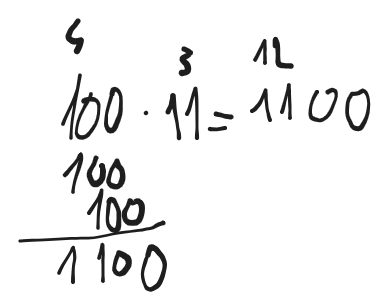 4 3 12
100 · 11 = 1100
100
100
1100